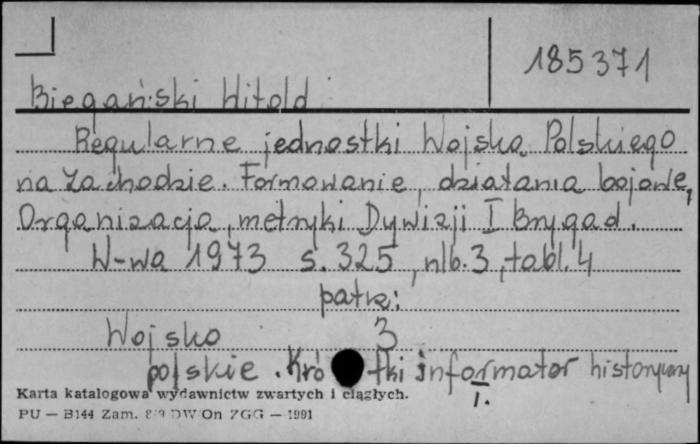 185371
Biegański Witold
Regularne jednostki Wojska Polskiego
na Zachodzie. Formowanie, działania bojowe,
Organizacja, metryki Dywizji I Brygad.
W-wa 1973 s. 325, nlb. 3, tabl. 4
patrz:
Wojsko 3
polskie. Krótki informator historyczny
I.
Karta katalogowa wydawnictw zwartych i ciągłych.
PU — B144 Zam. DW/On ZGG — 1991